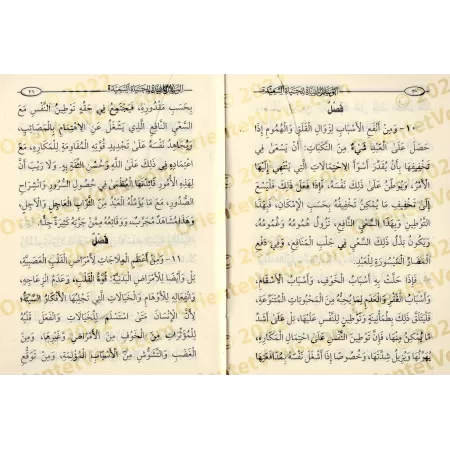 الوسائل المفيدة للحياة السعيدة
٢٠
فصل
١٠- ومن أنفع الأسباب لزوال القلق والهموم إذا
حصل على العبد شيء من النكبات، أن يسعى في
تخفيفها بأن يقدر أسوأ الاحتمالات التي ينتهي إليها
الأمر، ويوطن على ذلك نفسه، فإذا فعل ذلك فليسع
إلى تخفيف ما يمكن تخفيفه بحسب الإمكان، فبهذا
التوطين وبهذا السعي النافع، تزول همومه وغمومه،
ويكون بدل ذلك السعي في جلب المنافع، وفي دفع
المضار الميسورة للعبد.
فإذا حلت به أسباب الخوف، وأسباب الأسقام،
وأسباب الفقر والعدم لما يحبه من المحبوبات المتنوعة،
فليتلق ذلك بطمأنينة وتوطين للنفس عليها، بل على أشد
ما يمكن منها، فإن توطين النفس على احتمال المكاره،
يهونها ويزيل شدتها، وخصوصا إذا أشغل نفسه بمدافعتها
الوسائل المفيدة للحياة السعيدة
٢١
بحسب مقدوره، فيجتمع في حقه توطين النفس مع
السعي النافع الذي يشغل عن الاهتمام بالمصائب،
ويجاهد نفسه على تجديد قوته المقاومة للمكاره، مع
اعتماده في ذلك على الله وحسن الثقة به. ولا ريب أن
لهذه الأمور فائدتها العظمى في حصول السرور وانشراح
الصدور، مع ما يؤمله العبد من الثواب العاجل والآجل،
وهذا مشاهد مجرب، ووقائعه ممن جربه كثيرة جدا.
فصل
١١- ومن أعظم العلاجات لأمراض القلب العصبية،
بل وأيضا للأمراض البدنية: قوة القلب، وعدم انزعاجه،
وانفعاله للأوهام والخيالات التي تجلبها الأفكار السيئة،
لأن الإنسان متى استسلم للخيالات وانفعل قلبه
للمؤثرات من الخوف من الأمراض وغيرها، ومن
الغضب والتشوش من الأسباب المؤلمة، ومن توقع